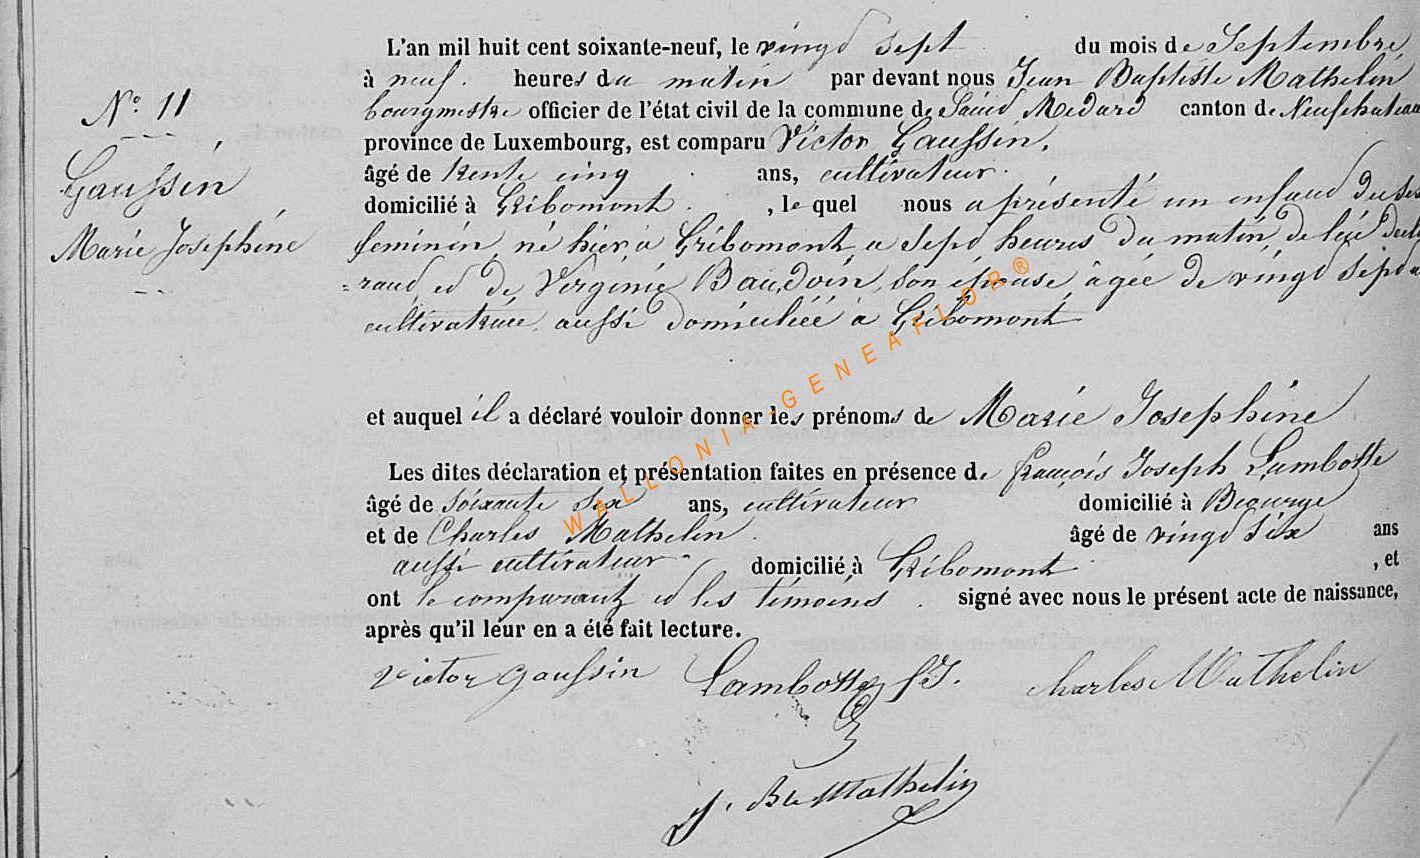 L'an mil huit cent soixante-neuf, le vingt sept du mois de Septembre
à neuf heures du matin par devant nous Jean Baptiste Mathelin
bourgmestre officier de l'état civil de la commune de Saint Médard canton de Neufchateau
province de Luxembourg, est comparu Victor Gaussin,
âgé de trente cinq ans, cultivateur
domicilié à Gribomont, le quel nous a présenté un enfant du sexe
feminin, né hier, à Gribomont a sept heures du matin, de lui décla
=rant et de Virginie Baudoin, son épouse âgée de vingt sept a
cultivatrice aussi domiciliée à Gribomont
et auquel il a déclaré vouloir donner les prénoms de Marie Josephine
Les dites déclaration et présentation faites en présence de françois Joseph Lambotte
âgé de soixante six ans, cultivateur domicilié à
et de Charles Mathelin âgé de vingt six ans
aussi cultivateur domicilié à Gribomont, et
ont le comparant et les témoins signé avec nous le présent acte de naissance,
après qu'il leur en a été fait lecture.
Victor Gaussin Lambotte f J. Charles Mathelin
J. Bte Mathelin
N° 11
Gaussin
Marie Josephine
WALLONIA-GENEAFLOR®